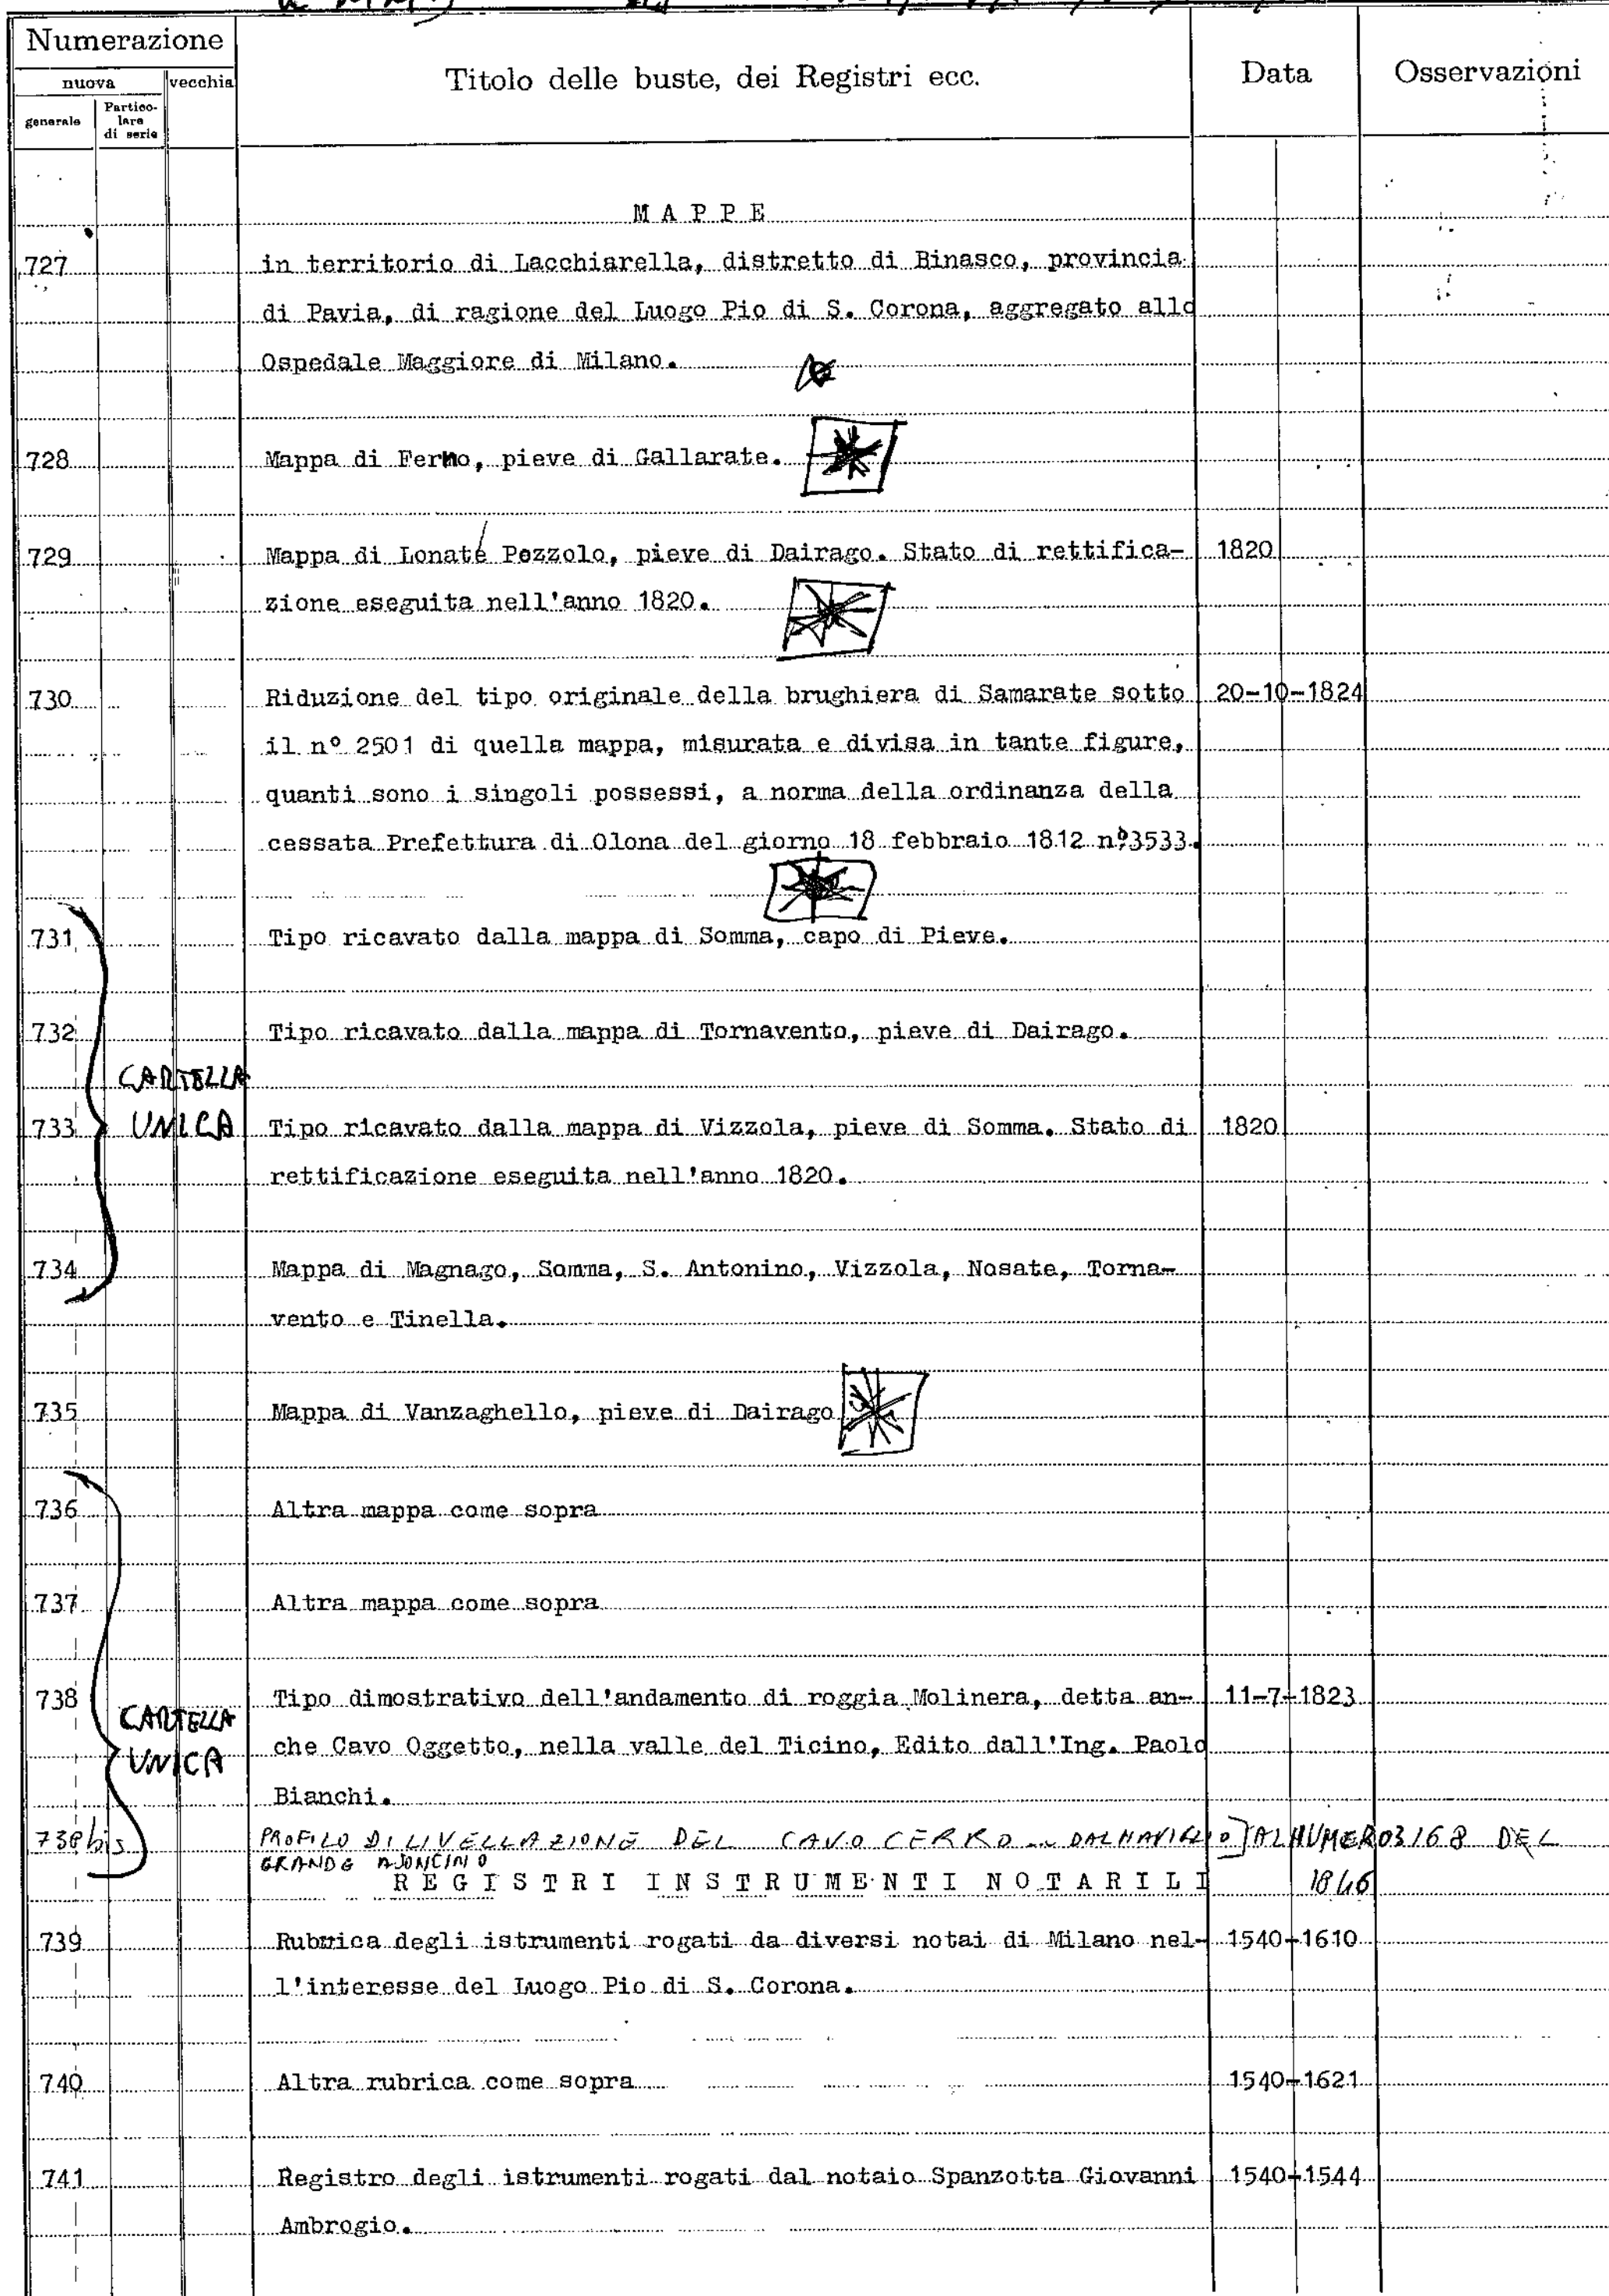 Numerazione
nuova vecchia
generale Partico-
lare
di serie
Titolo delle buste, dei Registri ecc.
Data
Osservazioni
M A P P E
727 in territorio di Lacchiarella, distretto di Binasco, provincia
di Pavia, di ragione del Luogo Pio di S. Corona, aggregato allo
Ospedale Maggiore di Milano.
728 Mappa di Ferno, pieve di Gallarate.
729 Mappa di Lonate Pozzolo, pieve di Dairago. Stato di rettifica- 1820
zione eseguita nell'anno 1820.
730 Riduzione del tipo originale della brughiera di Samarate sotto 20-10-1824
il n° 2501 di quella mappa, misurata e divisa in tante figure,
quanti sono i singoli possessi, a norma della ordinanza della
cessata Prefettura di Olona del giorno 18 febbraio 1812 n°3533.
731 Tipo ricavato dalla mappa di Somma, capo di Pieve.
732 Tipo ricavato dalla mappa di Tornavento, pieve di Dairago.
CARTELLA
UNICA
733 Tipo ricavato dalla mappa di Vizzola, pieve di Somma. Stato di 1820
rettificazione eseguita nell'anno 1820.
734 Mappa di Magnago, Somma, S. Antonino, Vizzola, Nosate, Torna-
vento e Tinella.
735 Mappa di Vanzaghello, pieve di Dairago
736 Altra mappa come sopra
737 Altra mappa come sopra
738 Tipo dimostrativo dell'andamento di roggia Molinera, detta an- 11-7-1823
CARTELLA
UNICA
che Cavo Oggetto, nella valle del Ticino, Edito dall'Ing. Paolo
Bianchi.
738 bis PROFILO DI LIVELLAZIONE DEL CAVO CERRO ... DAL NAVIGLIO AL NUMERO 3168 DEL
GRANDE
1846
R E G I S T R I I N S T R U M E N T I N O T A R I L I
739 Rubrica degli istrumenti rogati da diversi notai di Milano nel- 1540-1610
l'interesse del Luogo Pio di S. Corona.
740 Altra rubrica come sopra 1540-1621
741 Registro degli istrumenti rogati dal notaio Spanzotta Giovanni 1540-1544
Ambrogio.